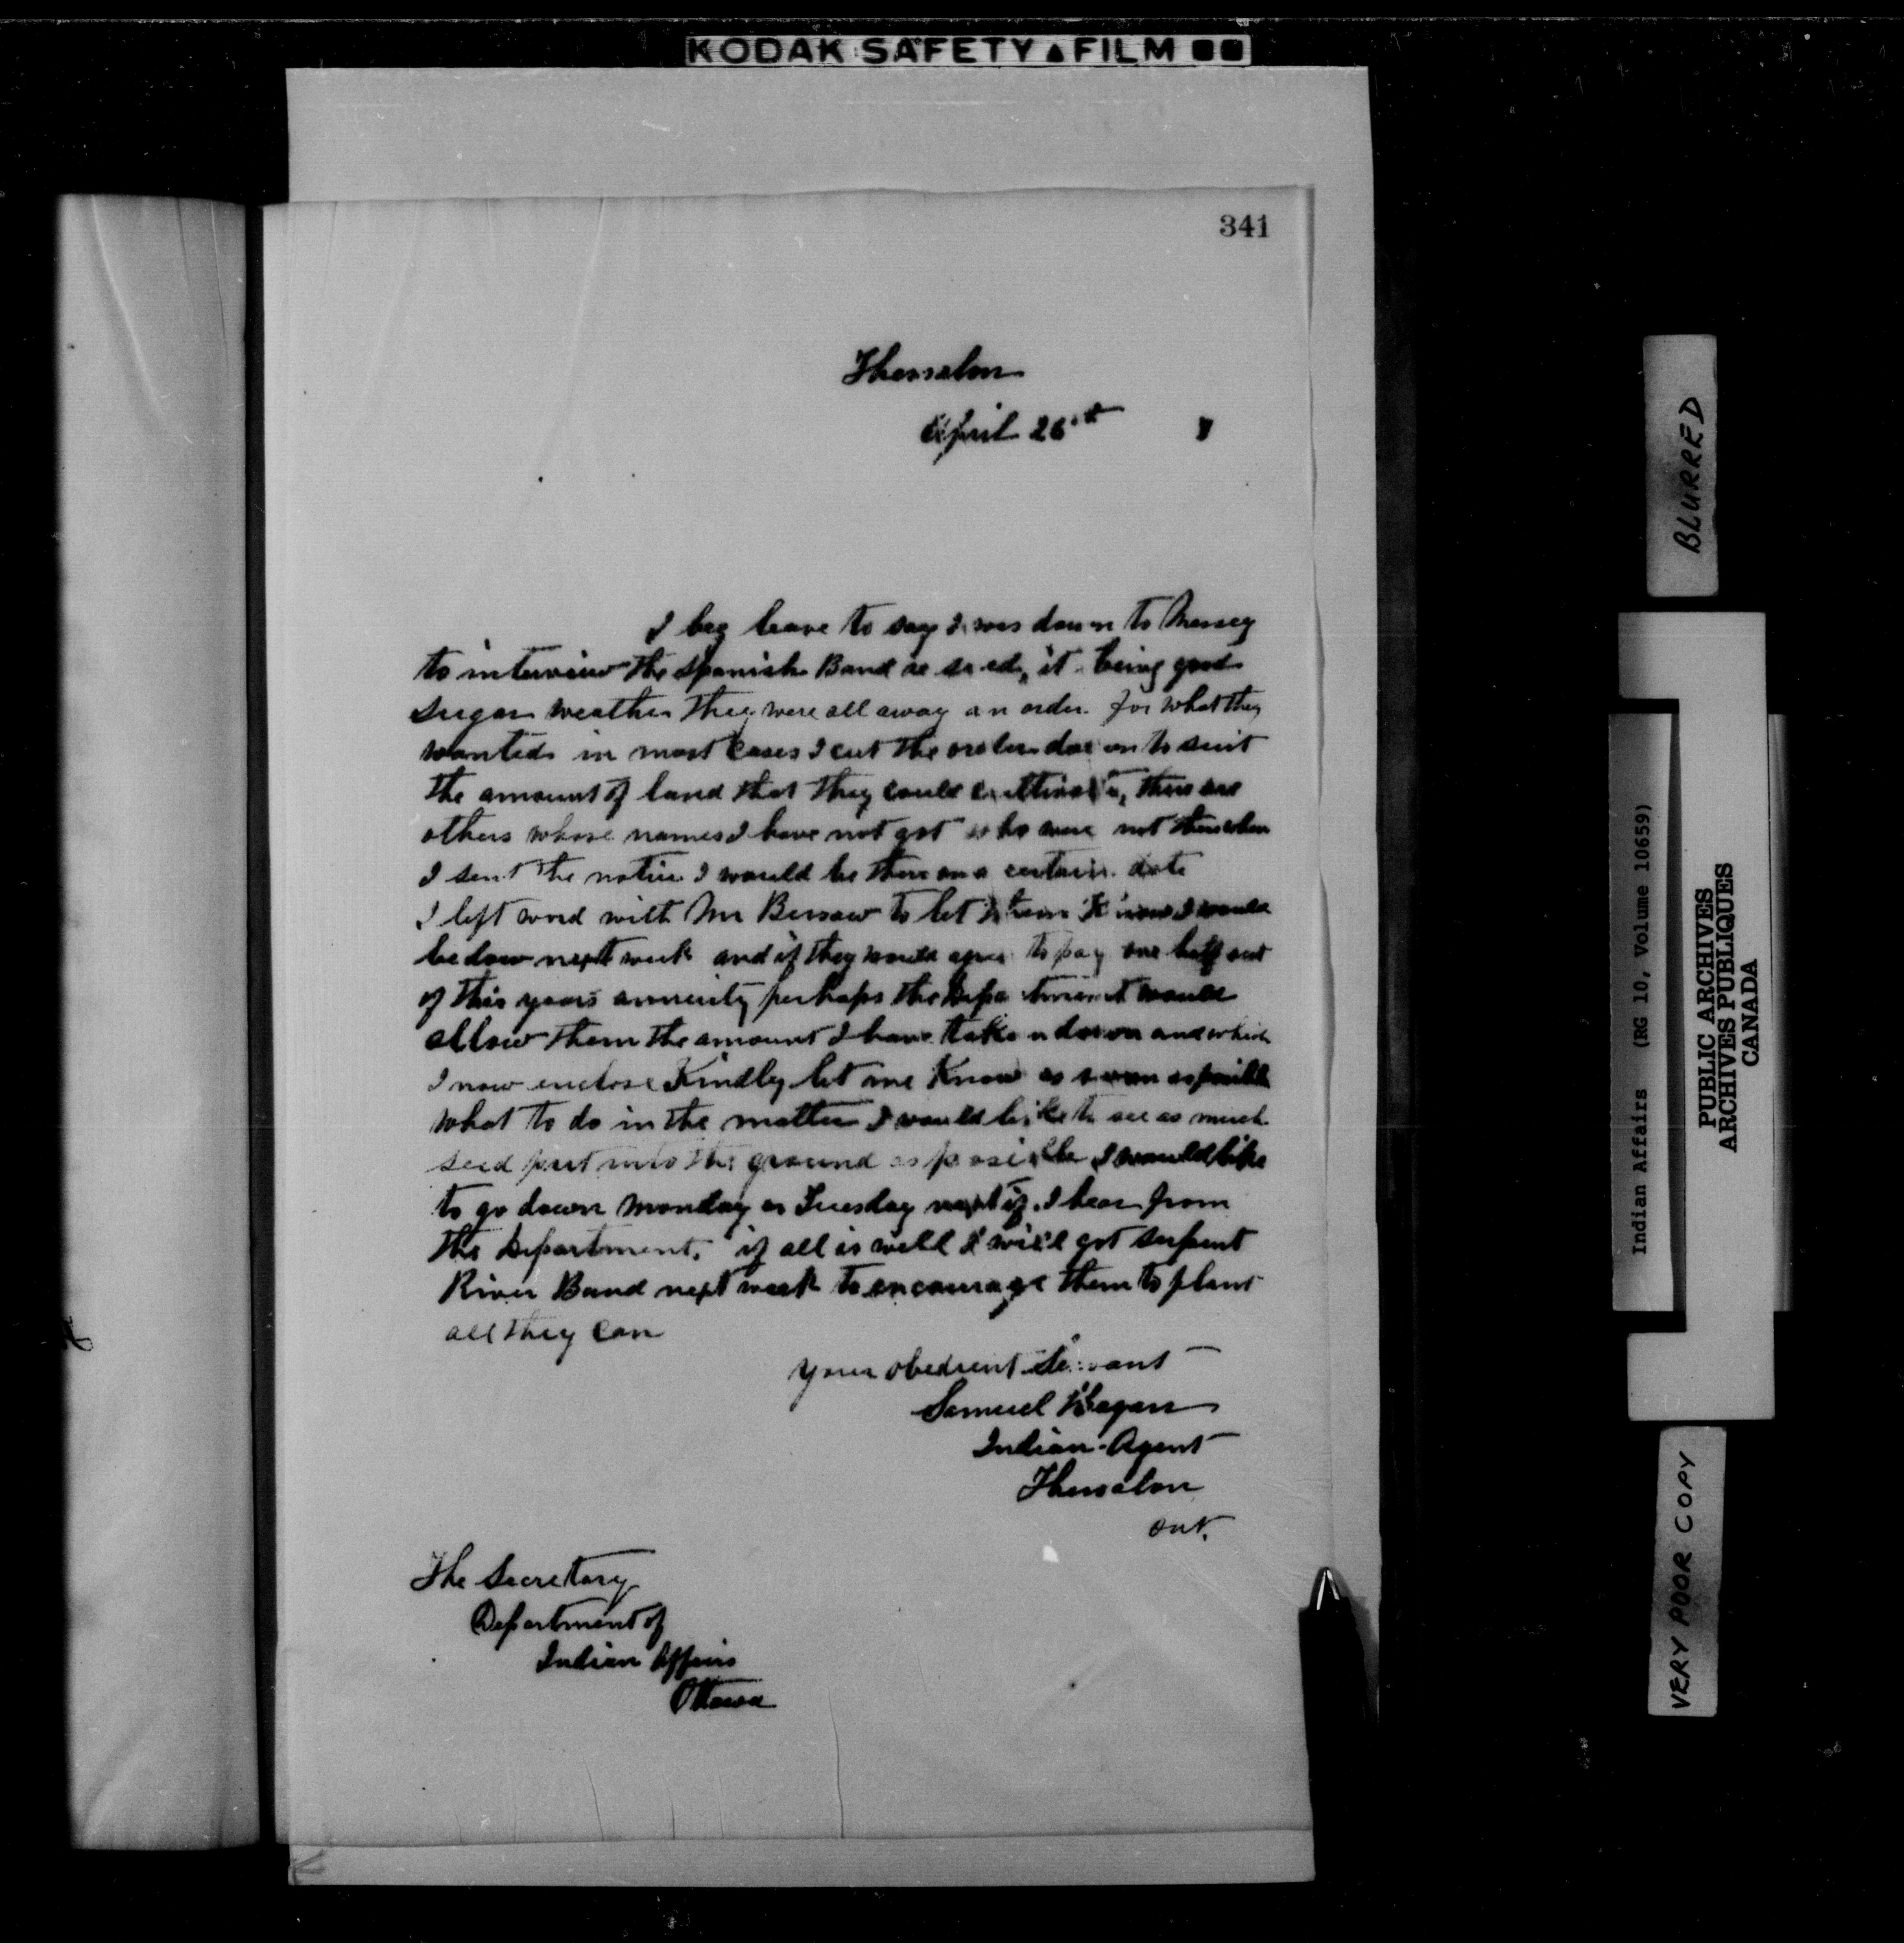 KODAK SAFETY FILM
341
Thessalon
April 26th
I beg leave to say I was down to Massey
to interview the Spanish Band re seed, it being good
Sugar weather they were all away an order for what they
wanted in most cases I cut the order down to suit
the amount of land that they could cultivate, there are
others whose names I have not got who were not there when
I sent the notice I would be there on a certain date
I left word with Mr to let them Know I would
be down next week and if they would agree to pay one half out
of this years annuity perhaps the Department would
allow them the amount I have taken down and which
I now enclose Kindly let me Know as soon as possible
what to do in the matter I would like to see as much
seed put into the ground as possible I would like
to go down Monday or Tuesday next if I hear from
the Department. if all is well I will got Serpent
River Band next week to encourage them to plant
all they can
your obedient Servant
Samuel Hagan
Indian Agent
Thessalon
Ont.
The Secretary
Department of
Indian Affairs
Ottawa
BLURRED
Indian Affairs (RG 10, Volume 10659)
PUBLIC ARCHIVES
ARCHIVES PUBLIQUES
CANADA
VERY POOR COPY